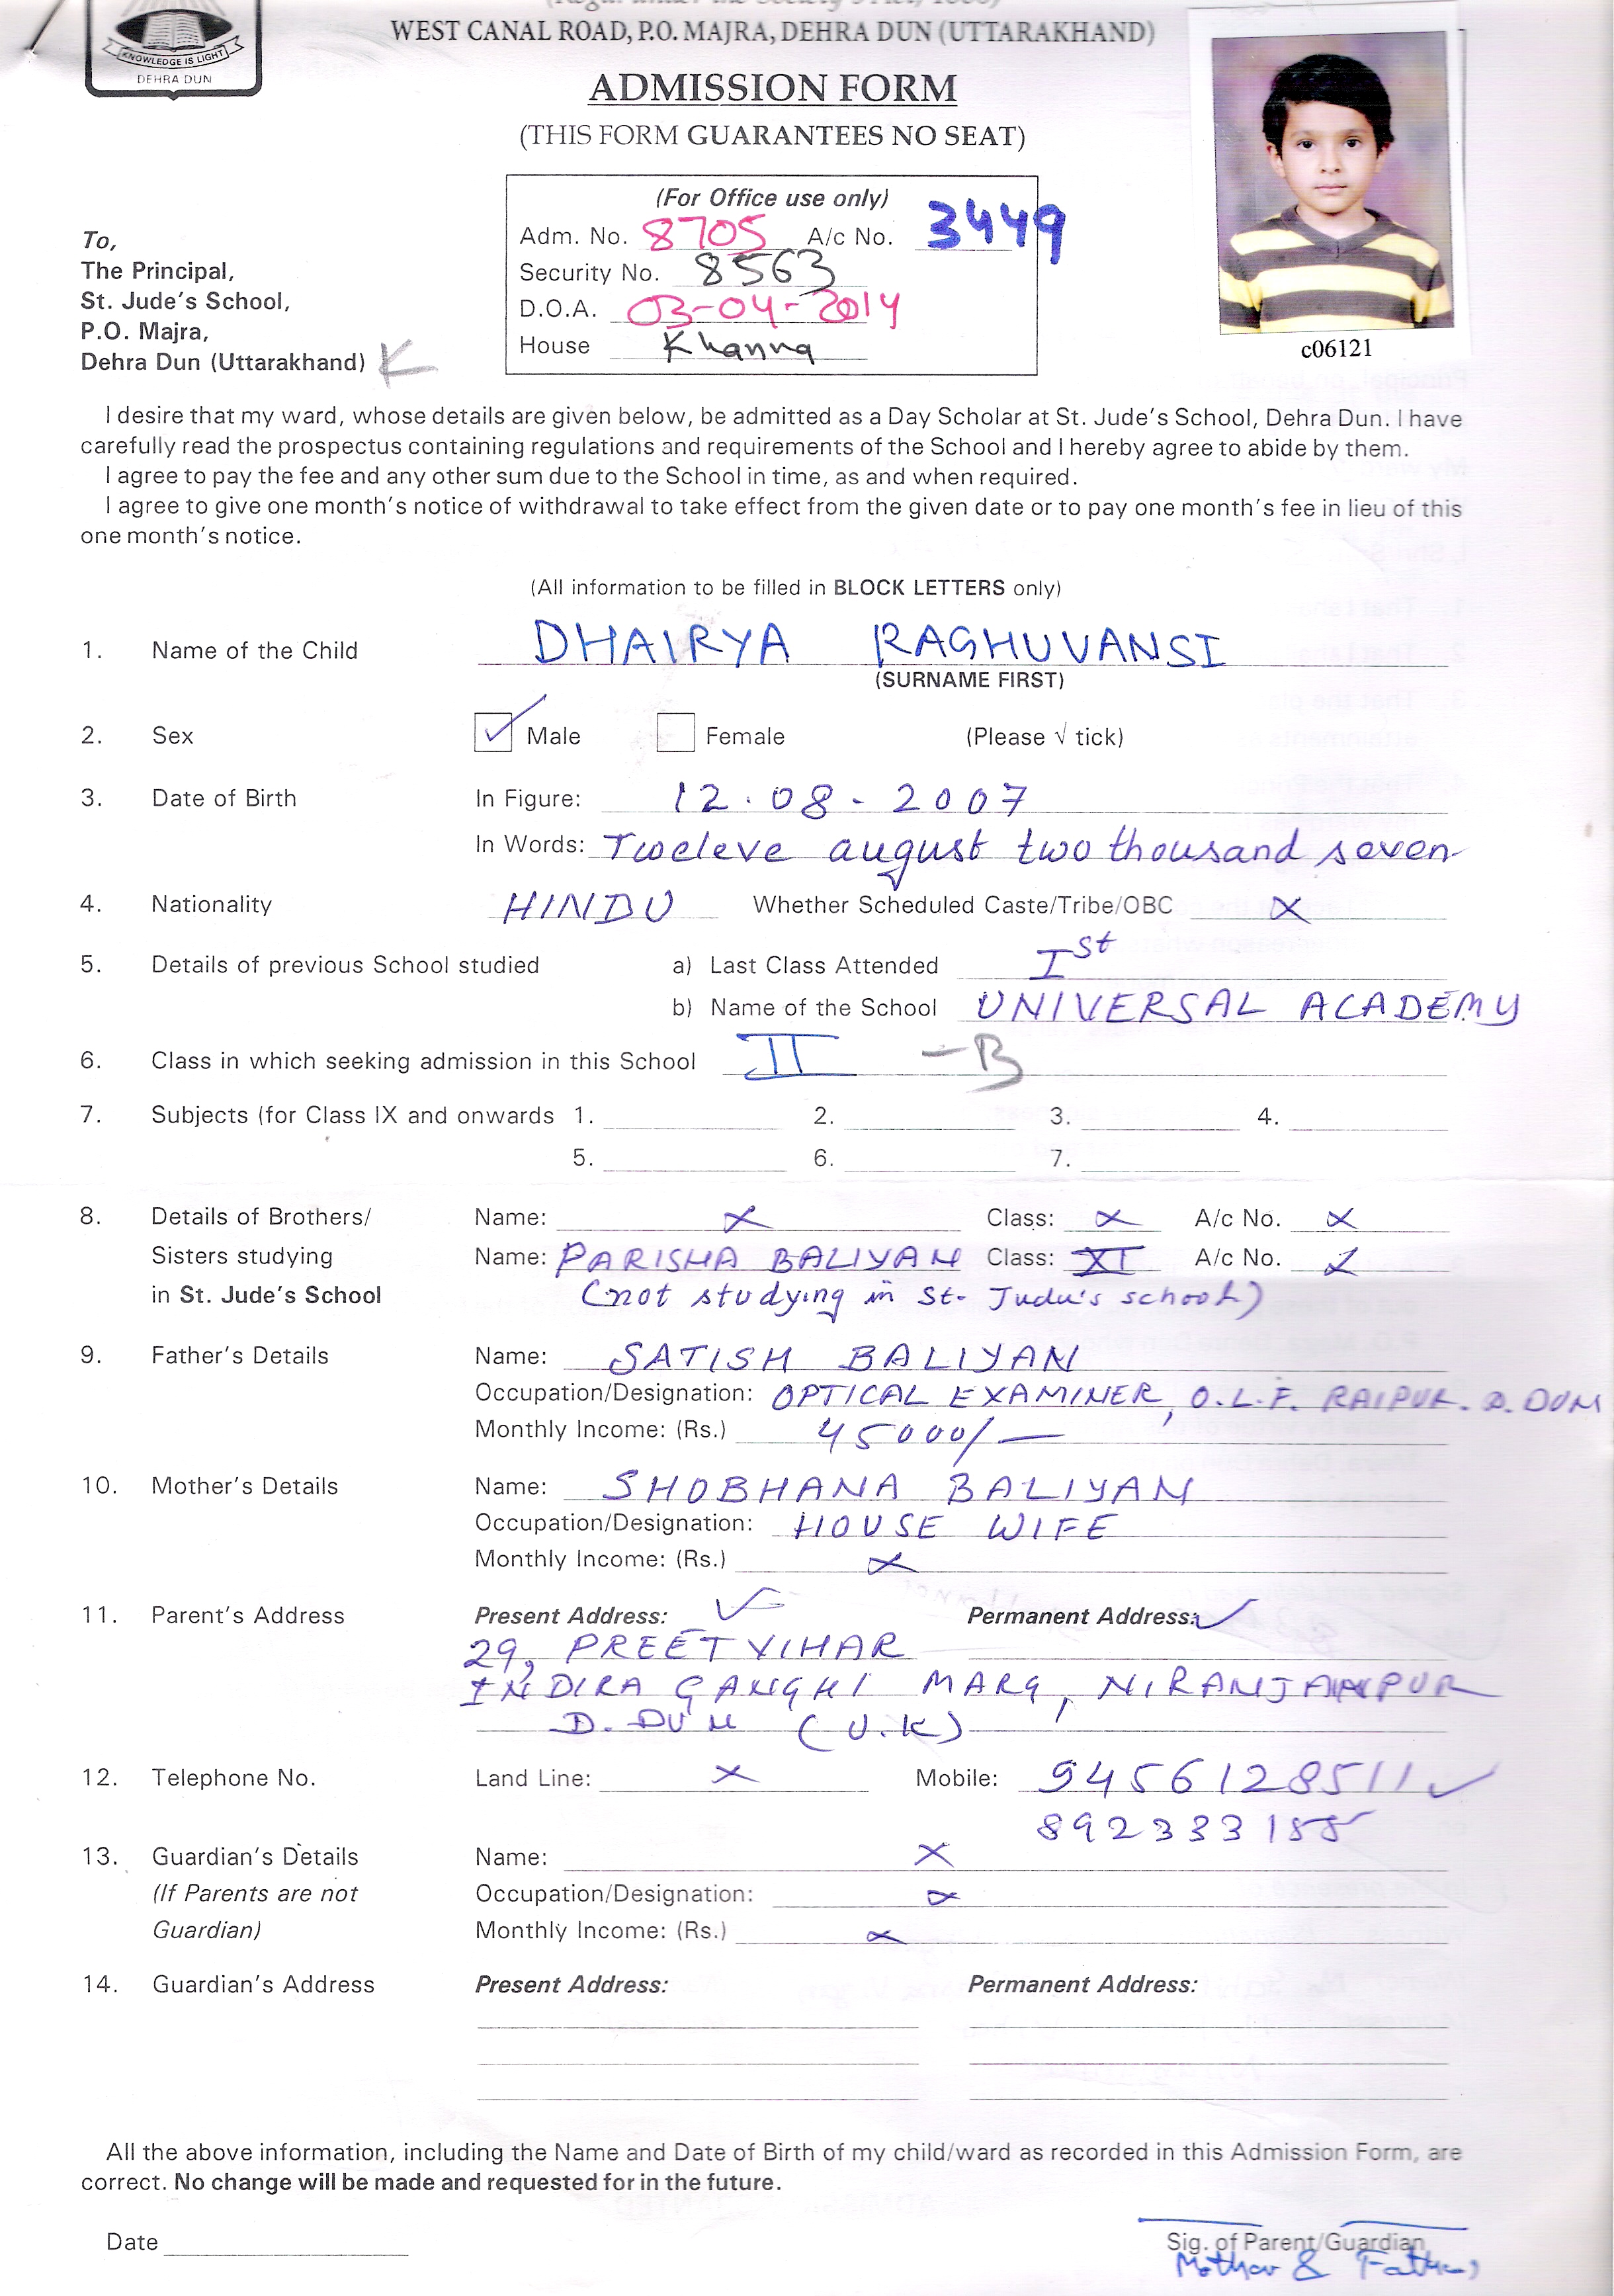 KNOWLEDGE IS LIGHT
DEHRA DUN
WEST CANAL ROAD, P.O. MAJRA, DEHRA DUN (UTTARAKHAND)
ADMISSION FORM
(THIS FORM GUARANTEES NO SEAT)
(For Office use only)
Adm. No. 8705 A/c No. 3449
Security No. 8563
D.O.A. 03-04-2014
House Khanna
c06121
To,
The Principal,
St. Jude's School,
P.O. Majra,
Dehra Dun (Uttarakhand) K
I desire that my ward, whose details are given below, be admitted as a Day Scholar at St. Jude's School, Dehra Dun. I have
carefully read the prospectus containing regulations and requirements of the School and I hereby agree to abide by them.
I agree to pay the fee and any other sum due to the School in time, as and when required.
I agree to give one month's notice of withdrawal to take effect from the given date or to pay one month's fee in lieu of this
one month's notice.
(All information to be filled in BLOCK LETTERS only)
1. Name of the Child DHAIRYA RAGHUVANSI
(SURNAME FIRST)
2. Sex ✓ Male Female (Please √ tick)
3. Date of Birth In Figure: 12.08-2007
In Words: Tweleve august two thousand seven
4. Nationality HINDU Whether Scheduled Caste/Tribe/OBC X
5. Details of previous School studied a) Last Class Attended Ist
b) Name of the School UNIVERSAL ACADEMY
6. Class in which seeking admission in this School II -B
7. Subjects (for Class IX and onwards 1. 2. 3. 4.
5. 6. 7.
8. Details of Brothers/ Name: X Class: X A/c No. X
Sisters studying Name: PARISHA BALIYAN Class: XI A/c No.
in St. Jude's School (not studying in St. Judu's school)
9. Father's Details Name: SATISH BALIYAN
Occupation/Designation: OPTICAL EXAMINER, O.L.F. RAIPUR. D. DUN
Monthly Income: (Rs.) 45000/-
10. Mother's Details Name: SHOBHANA BALIYAN
Occupation/Designation: HOUSE WIFE
Monthly Income: (Rs.) X
11. Parent's Address Present Address: ✓ Permanent Address: ✓
29, PREET VIHAR
INDIRA GANGHI MARG, NIRANJANPUR
D. DUN (U.K)
12. Telephone No. Land Line: X Mobile: 9456128511 ✓
892333155
13. Guardian's Details Name: X
(If Parents are not Occupation/Designation: X
Guardian) Monthly Income: (Rs.) X
14. Guardian's Address Present Address: Permanent Address:
All the above information, including the Name and Date of Birth of my child/ward as recorded in this Admission Form, are
correct. No change will be made and requested for in the future.
Date Sig. of Parent/Guardian
Mother & Father